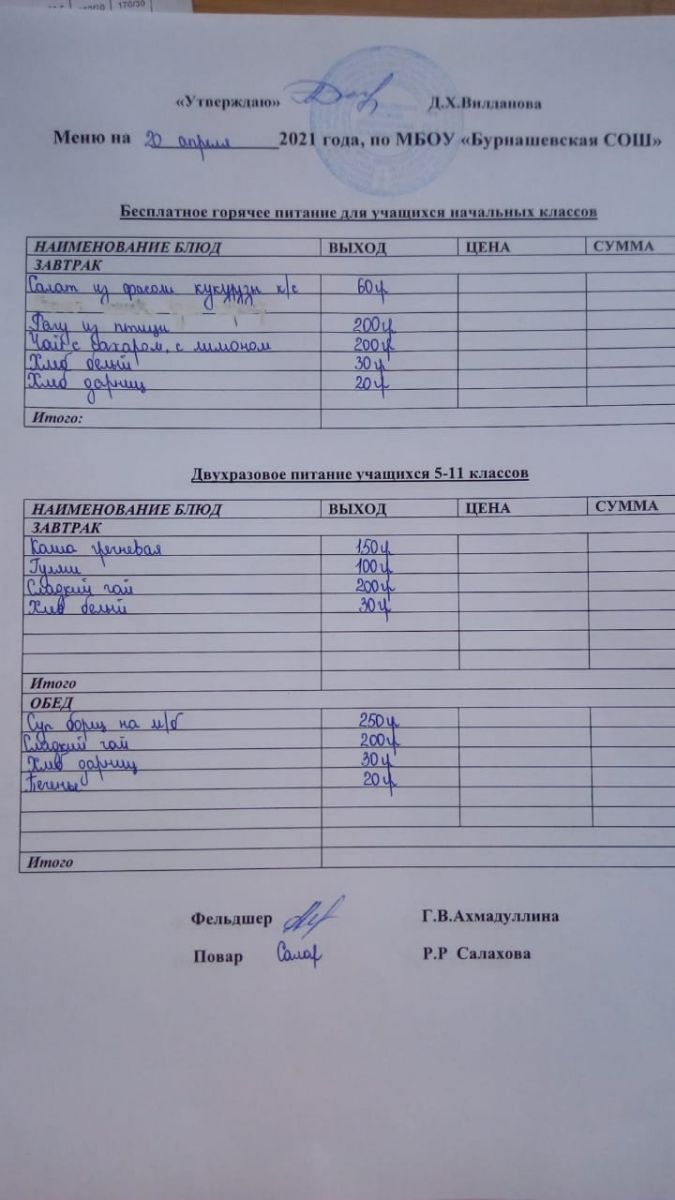 170/30
«Утверждаю» Д.Х.Вилданова
Меню на 20 апреля 2021 года, по МБОУ «Бурнашевская СОШ»
Бесплатное горячее питание для учащихся начальных классов
НАИМЕНОВАНИЕ БЛЮД ВЫХОД ЦЕНА СУММА
ЗАВТРАК
Салат из фасоли кукурузы к/с 60г
Рагу из птицы 200г
Чай с сахаром, с лимоном 200г
Хлеб белый 30г
Хлеб дарниц 20г
Итого:
Двухразовое питание учащихся 5-11 классов
НАИМЕНОВАНИЕ БЛЮД ВЫХОД ЦЕНА СУММА
ЗАВТРАК
Каша гречневая 150г
Гуляш 100г
Сладкий чай 200г
Хлеб белый 30г
Итого
ОБЕД
Суп борщ на м/б 250г
Сладкий чай 200г
Хлеб дарниц 30г
Печенье 20г
Итого
Фельдшер Г.В.Ахмадуллина
Повар Салах Р.Р Салахова